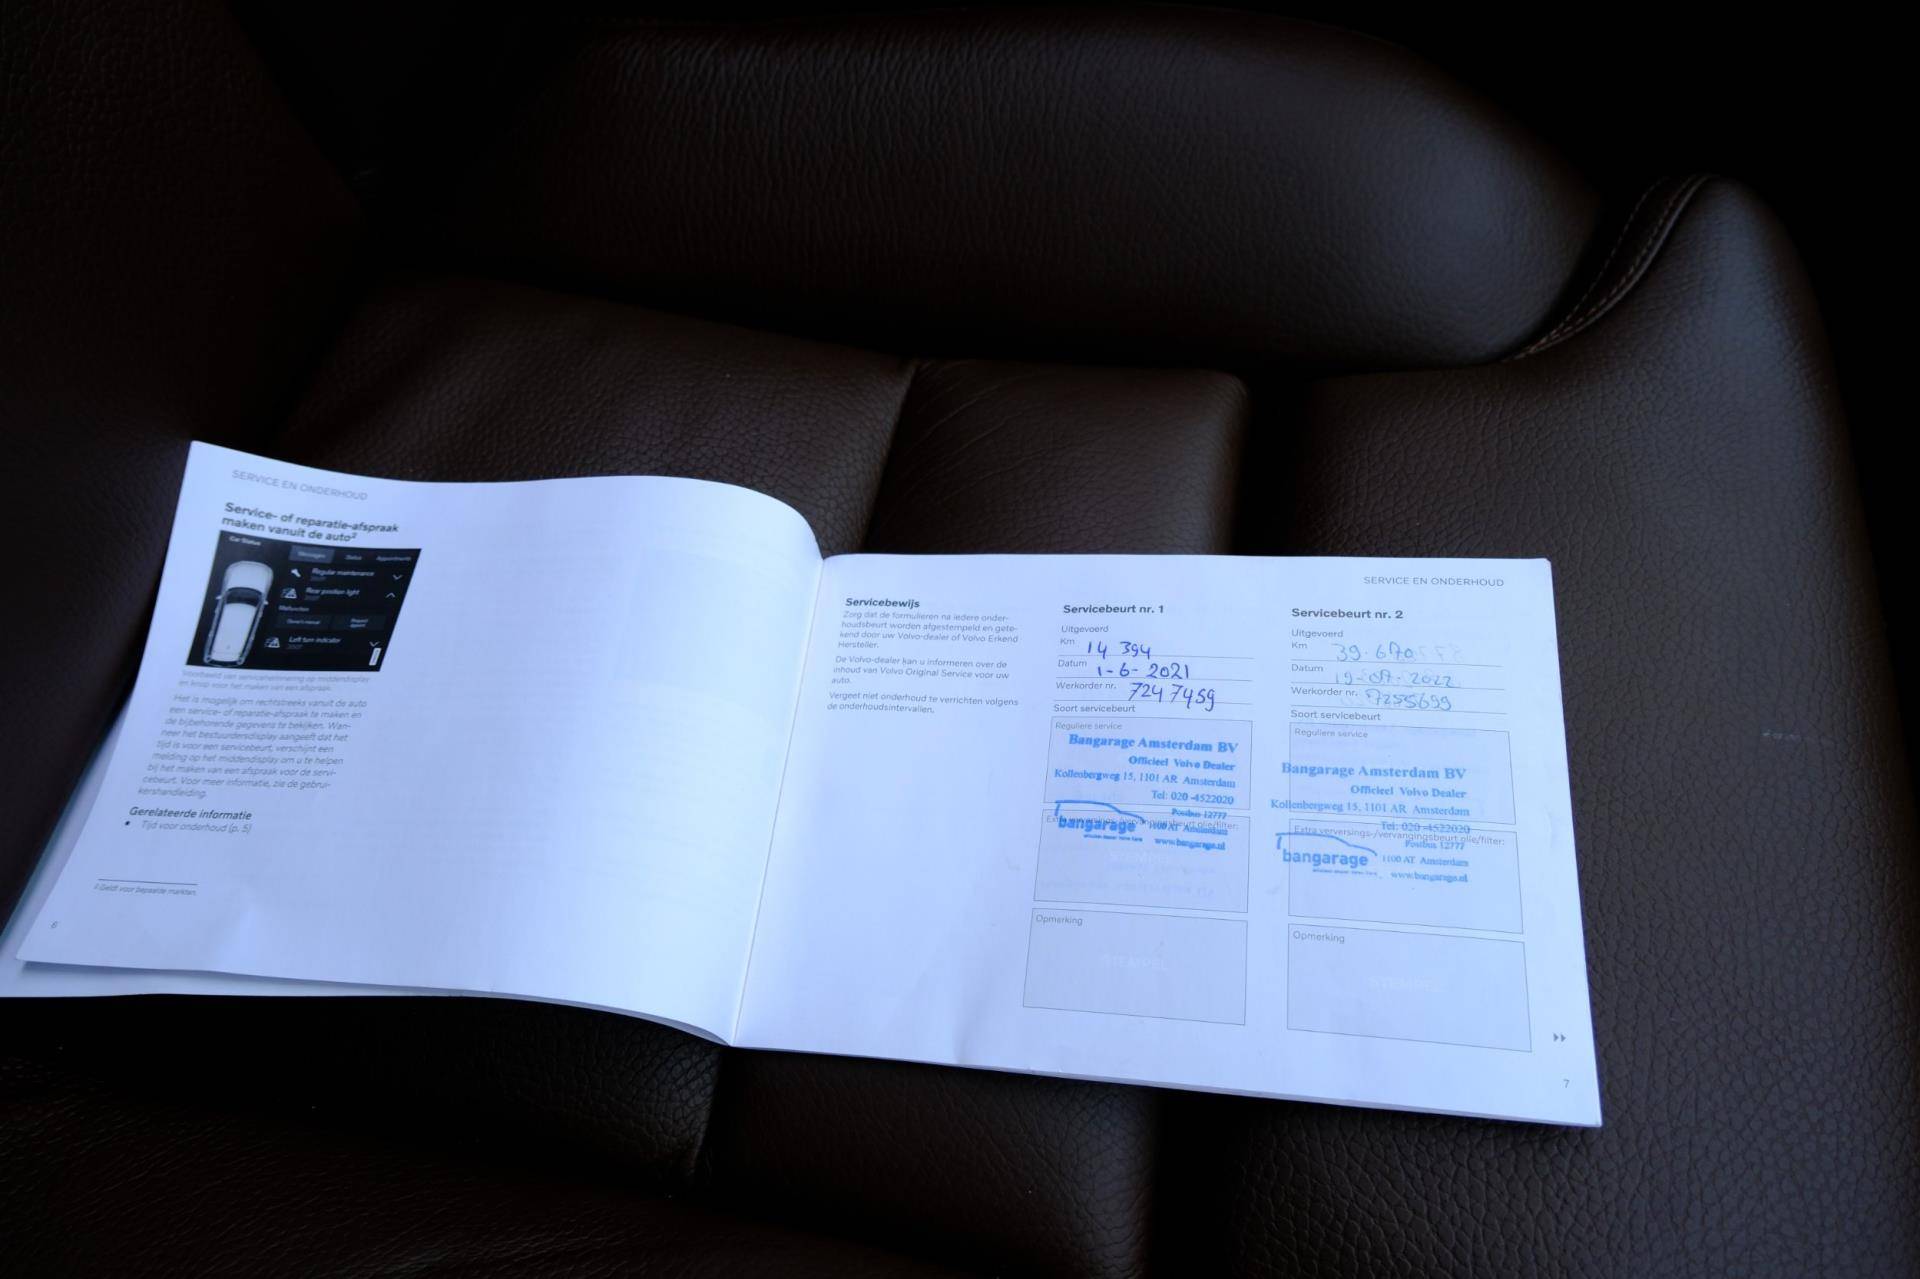 SERVICE EN ONDERHOUD
Service- of reparatie-afspraak
maken vanuit de auto²
Car Status
Messages Status Appointments
Regular maintenance
Rear position light
Malfunction
Owner's manual Request
Left turn indicator
Voorbeeld van serviceherinnering op middendisplay
en knop voor het maken van een afspraak.
Het is mogelijk om rechtstreeks vanuit de auto
een service- of reparatie-afspraak te maken en
de bijbehorende gegevens te bekijken. Wan-
neer het bestuurdersdisplay aangeeft dat het
tijd is voor een servicebeurt, verschijnt een
melding op het middendisplay om u te helpen
bij het maken van een afspraak voor de servi-
cebeurt. Voor meer informatie, zie de gebrui-
kershandleiding.
Gerelateerde informatie
• Tijd voor onderhoud (p. 5)
² Geldt voor bepaalde markten.
6
SERVICE EN ONDERHOUD
Servicebewijs
Zorg dat de formulieren na iedere onder-
houdsbeurt worden afgestempeld en gete-
kend door uw Volvo-dealer of Volvo Erkend
Hersteller.
De Volvo-dealer kan u informeren over de
inhoud van Volvo Original Service voor uw
auto.
Vergeet niet onderhoud te verrichten volgens
de onderhoudsintervallen.
Servicebeurt nr. 1
Uitgevoerd
Km 14 394
Datum 1-6-2021
Werkorder nr. 7247459
Soort servicebeurt
Reguliere service
Bangarage Amsterdam BV
Officieel Volvo Dealer
Kollenbergweg 15, 1101 AR Amsterdam
Tel: 020 -4522020
Postbus 12777
Extra verversings-/vervangingsbeurt olie/filter:
bangarage 1100 AT Amsterdam
www.bangarage.nl
STEMPEL
Opmerking
STEMPEL
Servicebeurt nr. 2
Uitgevoerd
Km 39.670
Datum 19-07-2022
Werkorder nr. 7255699
Soort servicebeurt
Reguliere service
Bangarage Amsterdam BV
Officieel Volvo Dealer
Kollenbergweg 15, 1101 AR Amsterdam
Tel: 020 -4522020
Extra verversings-/vervangingsbeurt olie/filter:
Postbus 12777
bangarage 1100 AT Amsterdam
www.bangarage.nl
Opmerking
STEMPEL
7